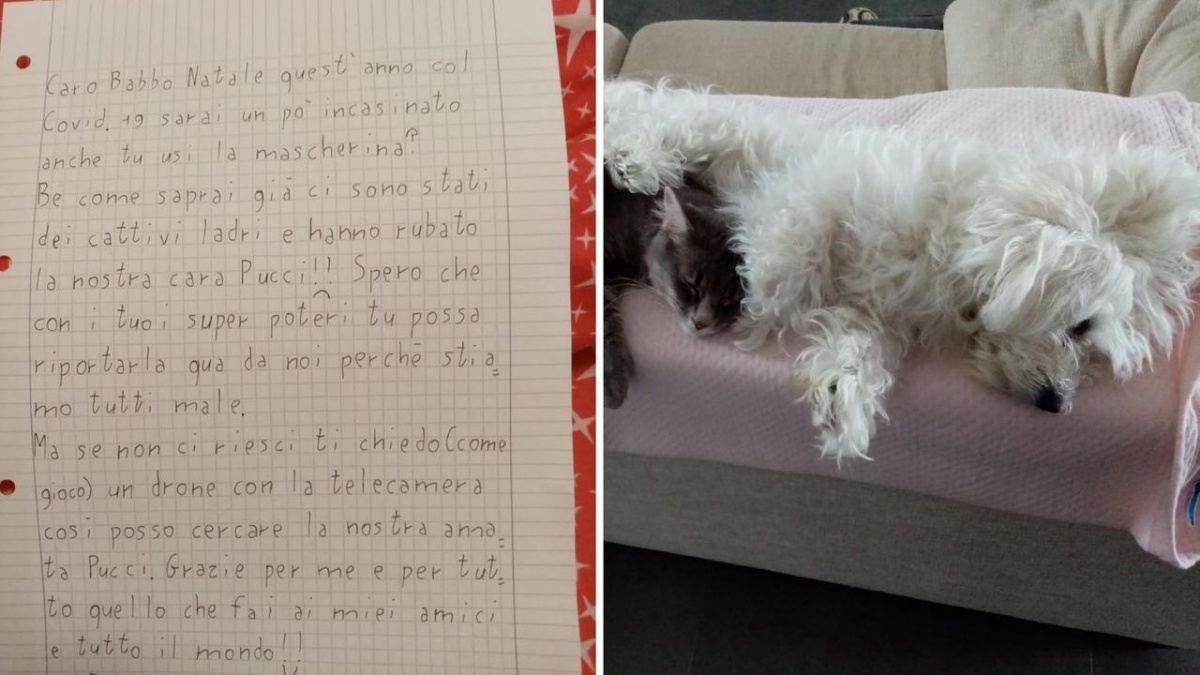 Caro Babbo Natale quest'anno col
Covid. 19 sarai un po' incasinato
anche tu usi la mascherina?
Be come saprai già ci sono stati
dei cattivi ladri e hanno rubato
la nostra cara Pucci!! Spero che
con i tuoi super poteri tu possa
riportarla qua da noi perchè stia=
mo tutti male.
Ma se non ci riesci ti chiedo (come
gioco) un drone con la telecamera
così posso cercare la nostra ama=
ta Pucci. Grazie per me e per tut=
to quello che fai ai miei amici
e tutto il mondo!!